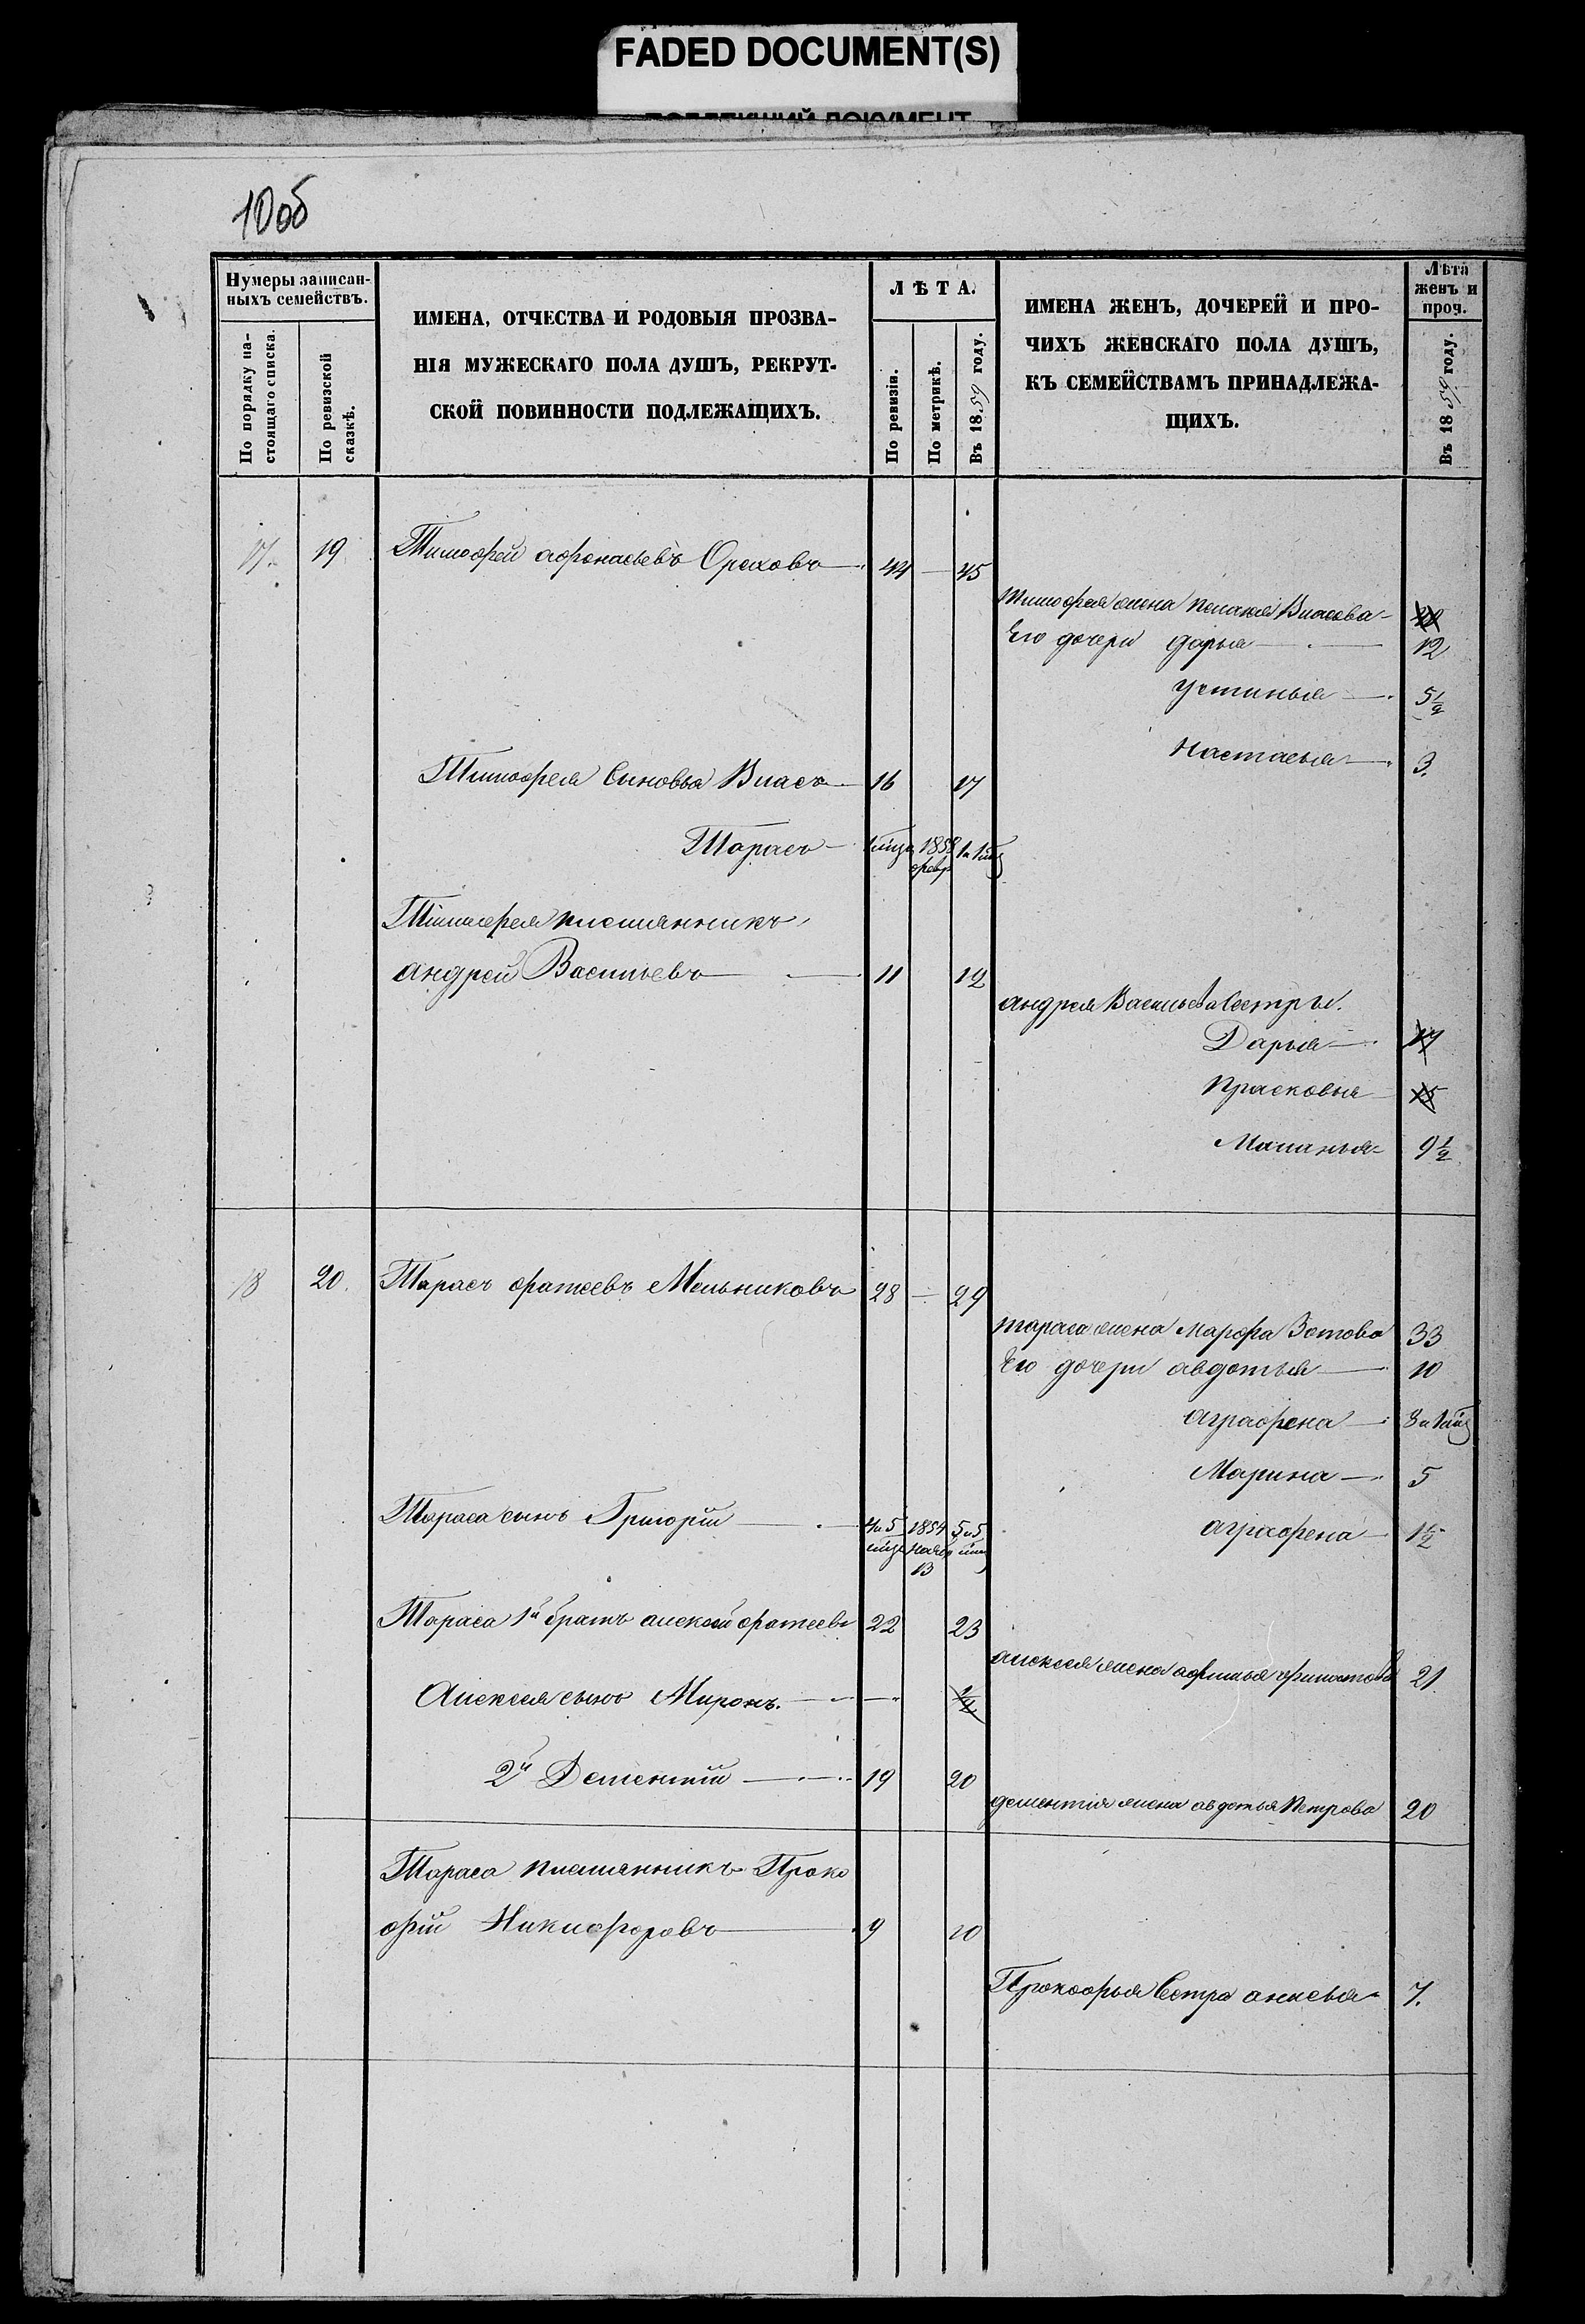 FADED DOCUMENT(S)
10 об
Нумеры записан-
ныхъ семействъ.
По порядку на-
стоящаго списка.
По ревизской
сказкѣ.
ИМЕНА, ОТЧЕСТВА И РОДОВЫЯ ПРОЗВА-
НІЯ МУЖЕСКАГО ПОЛА ДУШЪ, РЕКРУТ-
СКОЙ ПОВИННОСТИ ПОДЛЕЖАЩИХЪ.
ЛѢТА.
По ревизіи.
По метрикѣ.
Въ 1859 году.
ИМЕНА ЖЕНЪ, ДОЧЕРЕЙ И ПРО-
ЧИХЪ ЖЕНСКАГО ПОЛА ДУШЪ,
КЪ СЕМЕЙСТВАМЪ ПРИНАДЛЕЖА-
ЩИХЪ.
Лѣта
женъ и
проч.
Въ 1859 году.
17. 19 Тимофей афонасьевъ Ореховъ 44 — 45
Тимофея жена Пелагея Власова
Его дочери Дарья 12
Устинья 5 1/2
Настасья 3.
Тимофея Сыновья Власъ 16 17
Тарасъ 1 мѣс 1858 февр 1 и 1 мѣс
Тимофея племянникъ
андрей Васильевъ 11 12
андрея Васильева Сестры.
Дарья 17
Прасковья 15
Маланья 9 1/2
18 20. Тарасъ фатеевъ Мельниковъ 28 — 29
тараса жена Марфа Зотова 33
Его дочери авдотья 10
аграфена 8 и 1 мѣс
Марина 5
Тараса сынъ Григорій 4 и 5 мѣс 1854 Нояб 13 5 и 5 мѣс
аграфена 1 1/2
Тараса 1й братъ алексей фатеевъ 22 23
алексея жена 21
Алексея сынъ Миронъ. — 1/2
2й Дементій 19 20
дементія жена авдотья Петрова 20
Тараса племянникъ Проко
фій Никифоровъ 9 10
Прокофья Сестра аксенья 7.